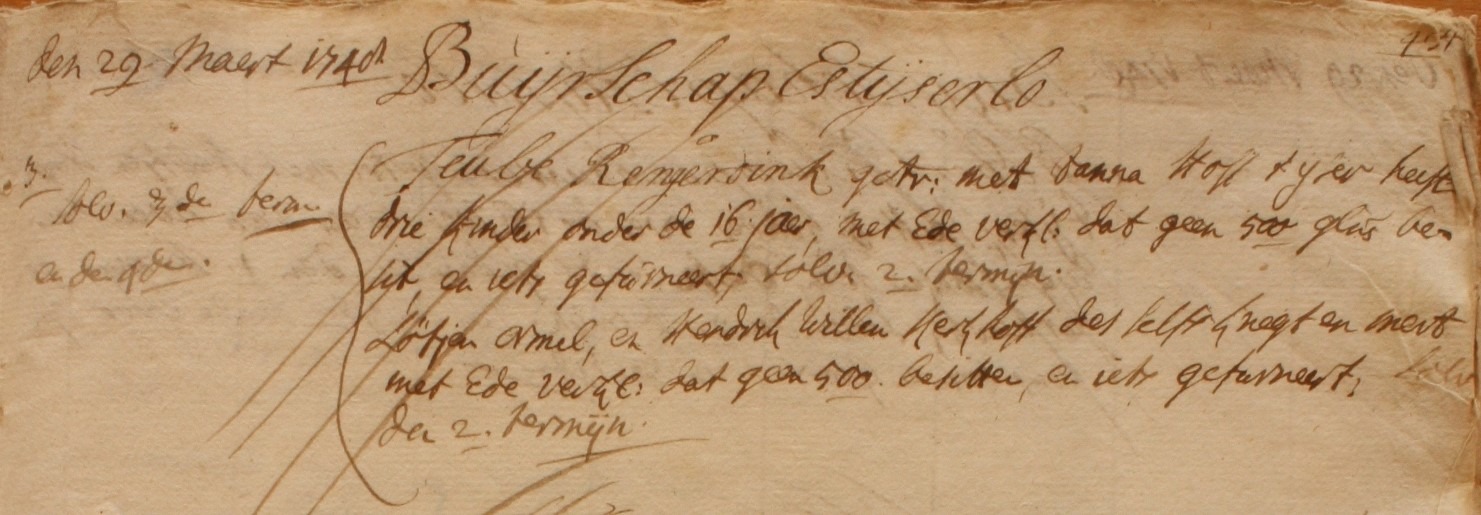 den 29 Maert 1748
Buijrschap Estijserlo
3.
solv. 3 de term.
en den 4 de.
Teube Rengersink getr: met Janna Hoff & yser heeft
drie kinder onder de 16 jaer, met Ede verkl: dat geen 500 glns be-
sit, en iets gefurneert, solv. 2. termijn.
Lötjen ormel, en Hendrik Willem Kerkhoff des selfs knegt en mert
met Ede verkl: dat geen 500. besitten, en iets gefurneert, solv
den 2. termijn.